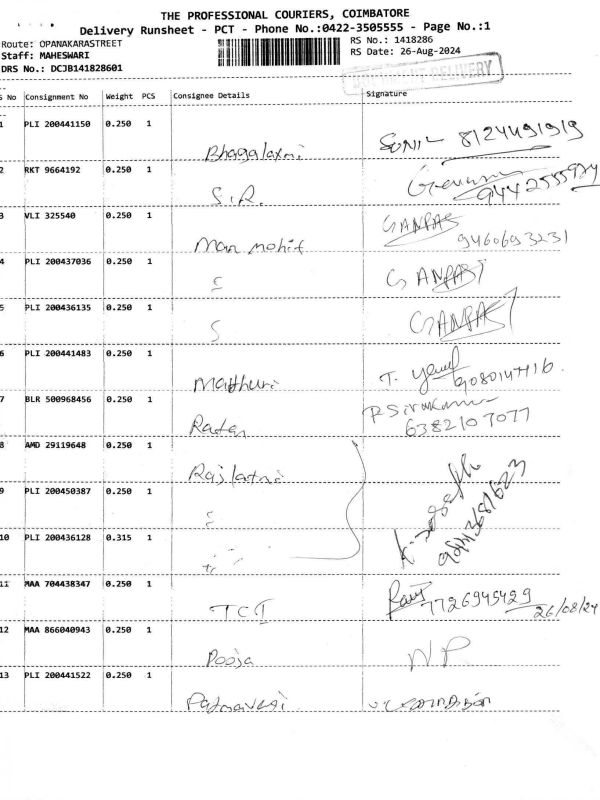 THE PROFESSIONAL COURIERS, COIMBATORE
Delivery Runsheet - PCT - Phone No.:0422-3505555 - Page No.:1
Route: OPANAKARASTREET
RS No.: 1418286
Staff: MAHESWARI
RS Date: 26-Aug-2024
DRS No.: DCJB141828601
DELIVERY
S No Consignment No Weight PCS Consignee Details Signature
1 PLI 200441150 0.250 1
Bhagalaxmi SUNIL 8124491919
2 RKT 9664192 0.250 1
S.R. 9442555974
3 VLI 325540 0.250 1 GANPAT
Man mohit 9460693231
4 PLI 200437036 0.250 1
S GANPAT
5 PLI 200436135 0.250 1
S GANPAT
6 PLI 200441483 0.250 1
Madhuri T. 9080147116
7 BLR 500968456 0.250 1
Ratan 6382107077
8 AMD 29119648 0.250 1
9 PLI 200450387 0.250 1
10 PLI 200436128 0.315 1
11 MAA 704438347 0.250 1
TCI Ravi 7726945429 26/08/24
12 MAA 866040943 0.250 1
Pooja NP
13 PLI 200441522 0.250 1